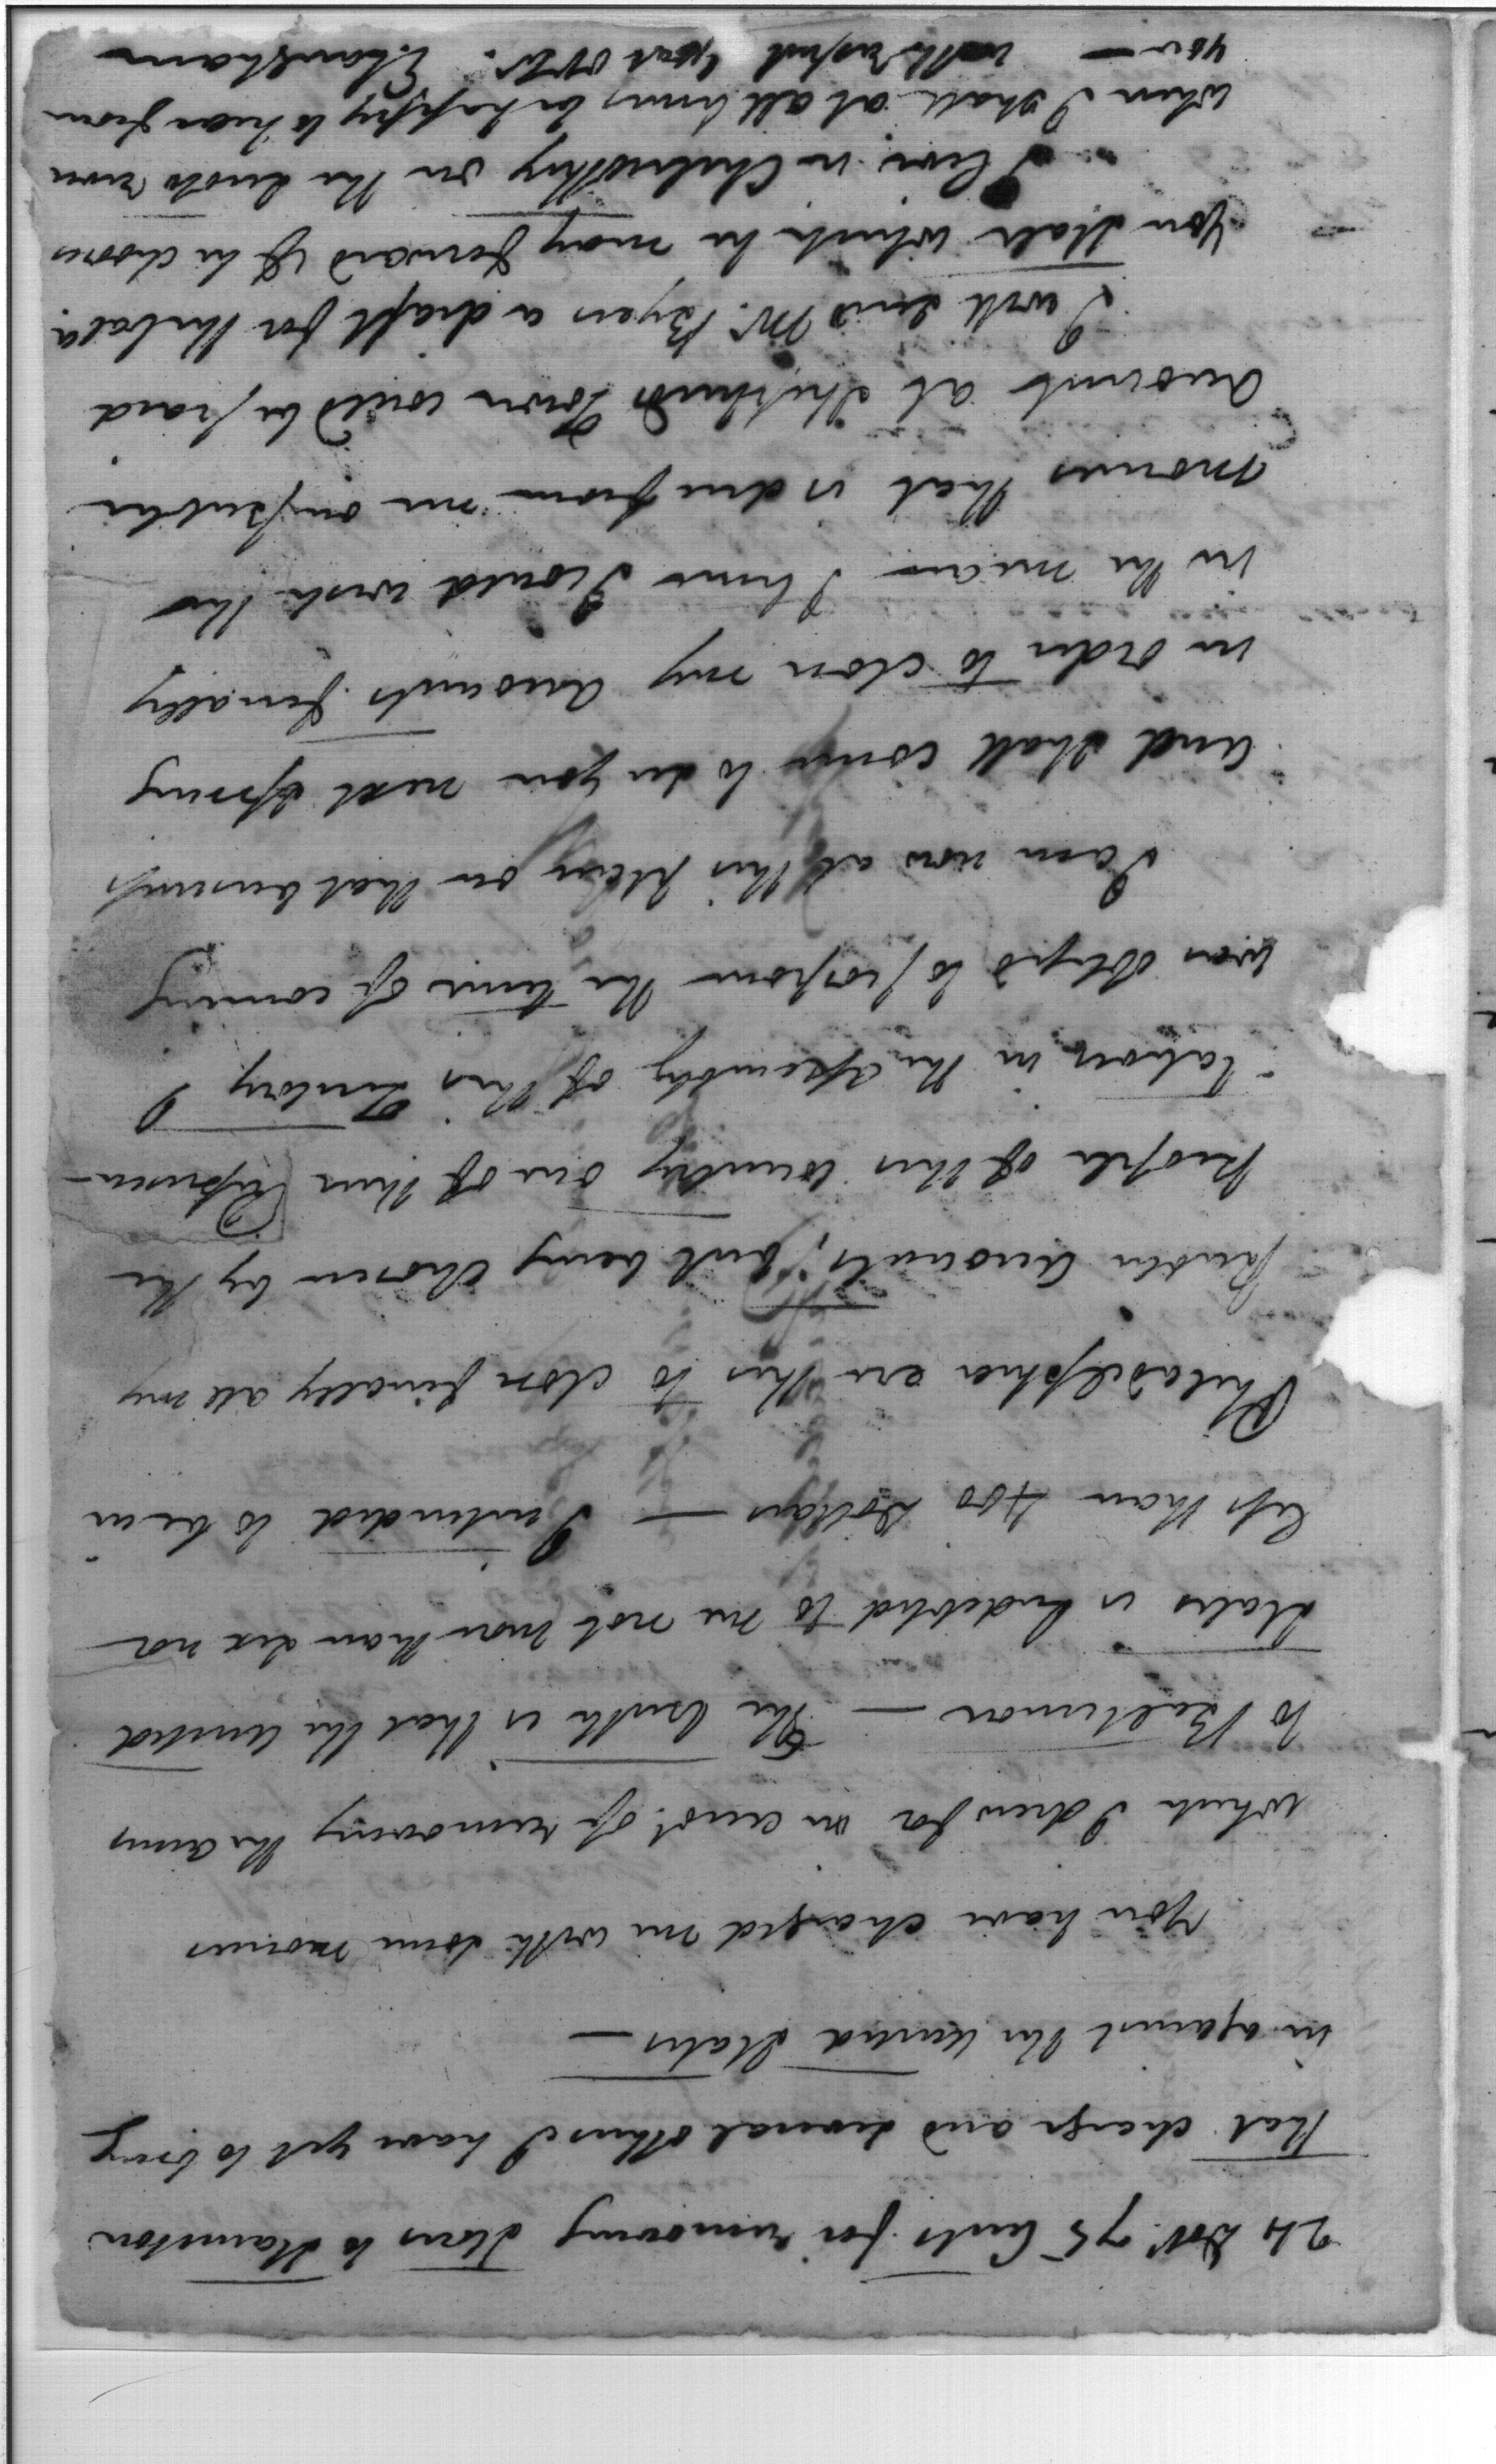 24 Doll. 75 Cents for removing Stores to Staunton
That charge and several others I have yet to bring
in against the United States —
You have charged me with some monies
which I drew for on acct. of removing the arms
to Baltimore — The truth is that the United
States is Indebted to me not more than six nor
less than 400 Dollars — I intended to be in
Philadelphia ere this to close finally all my
Publick Accounts, but being chosen by the
People of this country one of their Represen-
tatives in the Assembly of this Territory I
was obliged to postpone the time of coming
I am now at this place on that business
and shall come to see you next spring
in order to close my accounts finally
in the mean time I could wish the
monies that is due from me on publick
Accounts at Shepherds Town could be paid
I will send Mr. Byers a draft for the bala.
you State which he may forward if he chooses
I live in Chilicothey on the Scioto river
when I shall at all times be happy to hear from
you — with respect your ob. Sr.